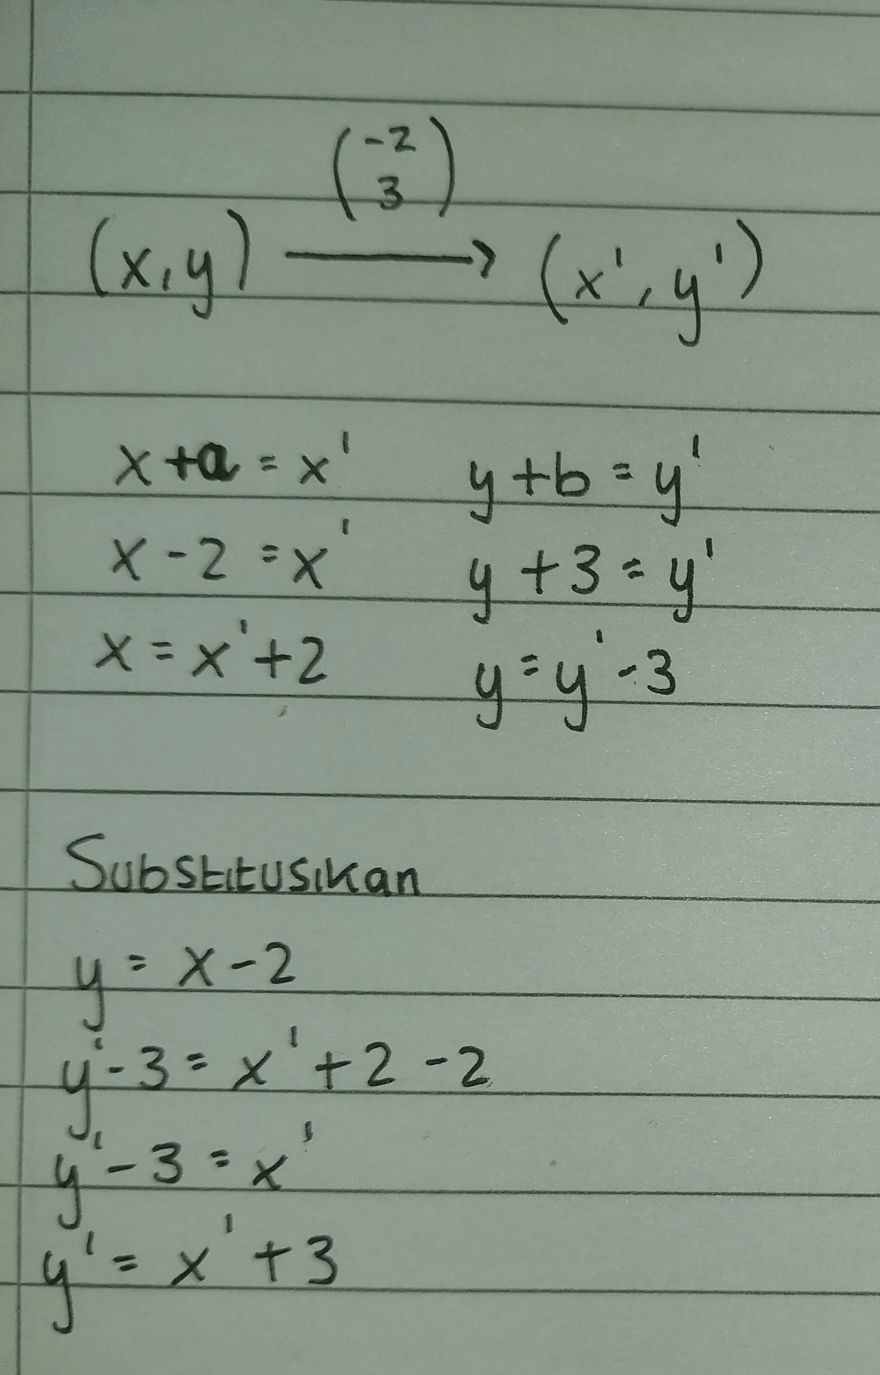 (-2
3)
(x,y) ⟶ (x', y')
x+a = x' y+b = y'
x-2 = x' y+3 = y'
x = x'+2 y = y'-3
Substitusikan
y = x-2
y'-3 = x'+2-2
y'-3 = x'
y' = x'+3